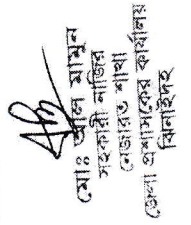 মোঃ আল মামুন
সহকারী নাজির
নেজারত শাখা
জেলা প্রশাসকের কার্যালয়
ঝিনাইদহ